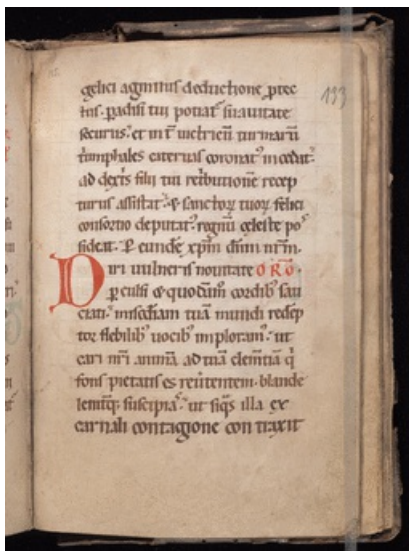 133
gelici agminis deductione ꝓtec
tus. ꝑadisi tui potiat᷒ suauitate
securus. et int̄ uictriciū turmarū
triumphales cateruas coronat᷒ incedat.
ad dext̄s filii tui ret̄butionē recep
turus assistat. & sanctoꝝ tuoꝝ felici
consortio deputat᷒. regnū celeste pos
sideat. P̲ eundē xp̄m dn̄m nr̄m.
Diri uulneris nouitate ORO.
ꝑculsi & quodam̄ cordib᷒ sau
ciati. mise͞diam tuā mundi redēp
tor flebilib᷒ uocib᷒ imploram᷒. ut
cari nr̄i animā ad tuā clem̄tiā q̄
fons pietatis es reu͛tentem. blande
leniterq; suscipias. ut siq̄s illa ex
carnali contagione contraxit